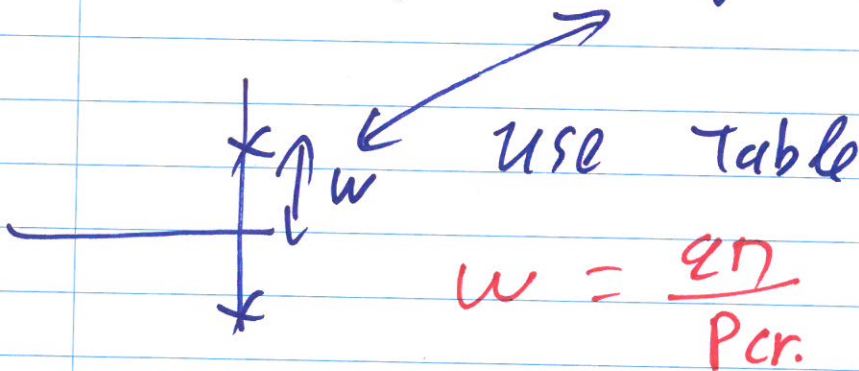 use Table
w
w = 2π
Pcr.